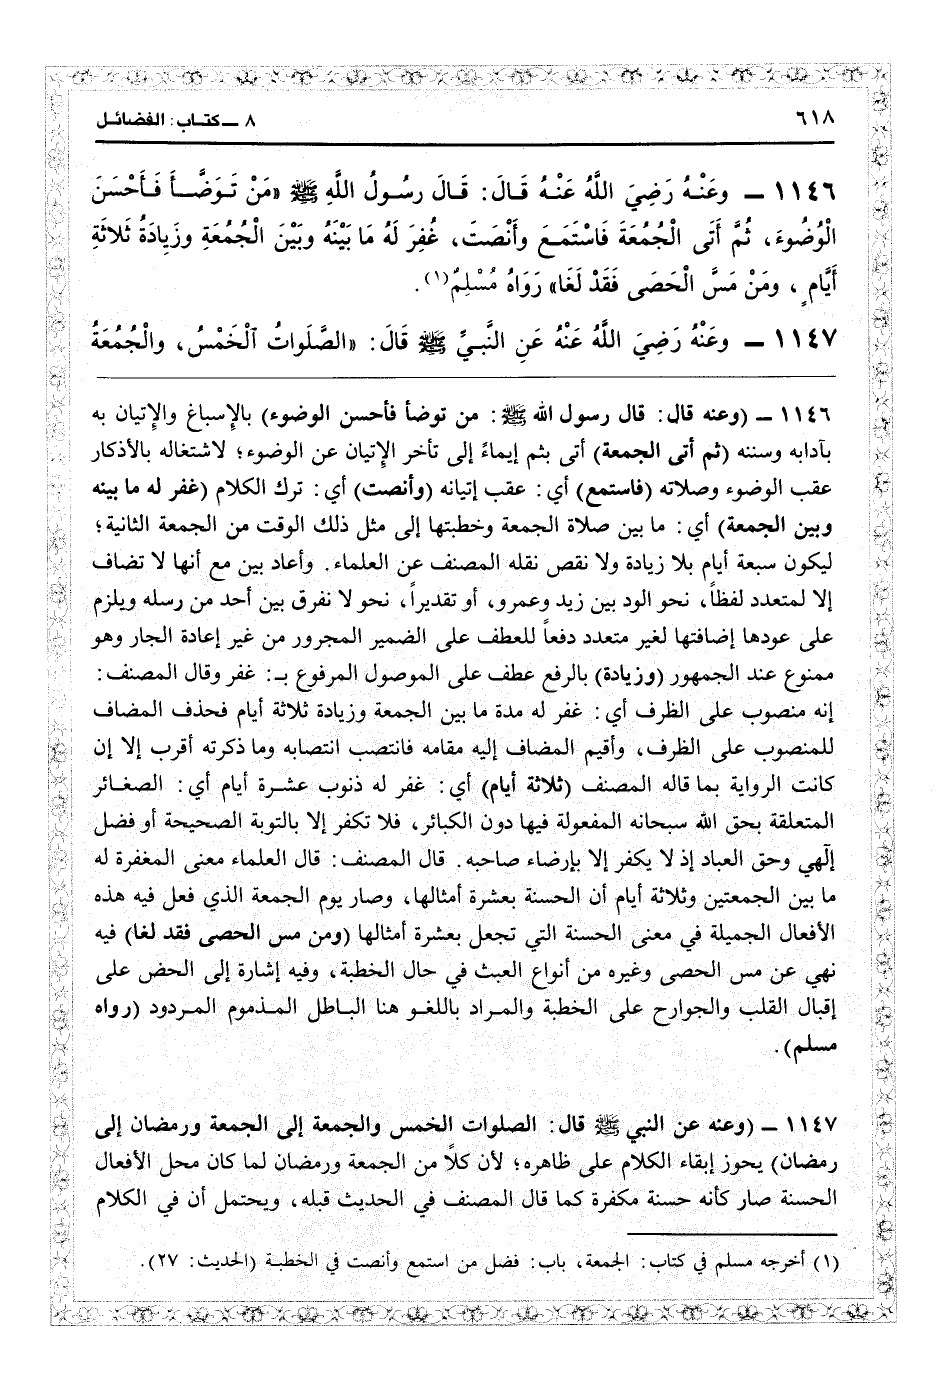 ٦١٨
٨ ــ كتاب: الفضائل
١١٤٦ ــ وعَنْهُ رَضِيَ اللَّهُ عَنْهُ قَالَ: قَالَ رسُولُ اللَّهِ ﷺ «مَنْ تَوَضَّأَ فَأَحْسَنَ
الْوُضُوءَ، ثُمَّ أَتَى الْجُمُعَةَ فَاسْتَمَعَ وأَنْصَتَ، غُفِرَ لَهُ مَا بَيْنَهُ وبَيْنَ الْجُمُعَةِ وزِيَادَةُ ثَلاثَةِ
أَيَّامٍ، ومَنْ مَسَّ الْحَصَى فَقَدْ لَغَا» رَوَاهُ مُسْلِمٌ(١).
١١٤٧ ــ وعَنْهُ رَضِيَ اللَّهُ عَنْهُ عَنِ النَّبِيِّ ﷺ قَالَ: «الصَّلَواتُ ٱلْخَمْسُ، والْجُمُعَةُ
١١٤٦ ــ (وعنه قال: قال رسول الله ﷺ: من توضأ فأحسن الوضوء) بالإسباغ والإتيان به
بآدابه وسننه (ثم أتى الجمعة) أتى بثم إيماءً إلى تأخر الإتيان عن الوضوء؛ لاشتغاله بالأذكار
عقب الوضوء وصلاته (فاستمع) أي: عقب إتيانه (وأنصت) أي: ترك الكلام (غفر له ما بينه
وبين الجمعة) أي: ما بين صلاة الجمعة وخطبتها إلى مثل ذلك الوقت من الجمعة الثانية؛
ليكون سبعة أيام بلا زيادة ولا نقص نقله المصنف عن العلماء. وأعاد بين مع أنها لا تضاف
إلا لمتعدد لفظاً، نحو الود بين زيد وعمرو، أو تقديراً، نحو لا نفرق بين أحد من رسله ويلزم
على عودها إضافتها لغير متعدد دفعاً للعطف على الضمير المجرور من غير إعادة الجار وهو
ممنوع عند الجمهور (وزيادة) بالرفع عطف على الموصول المرفوع بـ: غفر وقال المصنف:
إنه منصوب على الظرف أي: غفر له مدة ما بين الجمعة وزيادة ثلاثة أيام فحذف المضاف
للمنصوب على الظرف، وأقيم المضاف إليه مقامه فانتصب انتصابه وما ذكرته أقرب إلا إن
كانت الرواية بما قاله المصنف (ثلاثة أيام) أي: غفر له ذنوب عشرة أيام أي: الصغائر
المتعلقة بحق الله سبحانه المفعولة فيها دون الكبائر، فلا تكفر إلا بالتوبة الصحيحة أو فضل
إلٰهي وحق العباد إذ لا يكفر إلا بإرضاء صاحبه. قال المصنف: قال العلماء معنى المغفرة له
ما بين الجمعتين وثلاثة أيام أن الحسنة بعشرة أمثالها، وصار يوم الجمعة الذي فعل فيه هذه
الأفعال الجميلة في معنى الحسنة التي تجعل بعشرة أمثالها (ومن مس الحصى فقد لغا) فيه
نهي عن مس الحصى وغيره من أنواع العبث في حال الخطبة، وفيه إشارة إلى الحض على
إقبال القلب والجوارح على الخطبة والمراد باللغو هنا الباطل المذموم المردود (رواه
مسلم).
١١٤٧ ــ (وعنه عن النبي ﷺ قال: الصلوات الخمس والجمعة إلى الجمعة ورمضان إلى
رمضان) يحوز إبقاء الكلام على ظاهره؛ لأن كلاً من الجمعة ورمضان لما كان محل الأفعال
الحسنة صار كأنه حسنة مكفرة كما قال المصنف في الحديث قبله، ويحتمل أن في الكلام
(١) أخرجه مسلم في كتاب: الجمعة، باب: فضل من استمع وأنصت في الخطبة (الحديث: ٢٧).